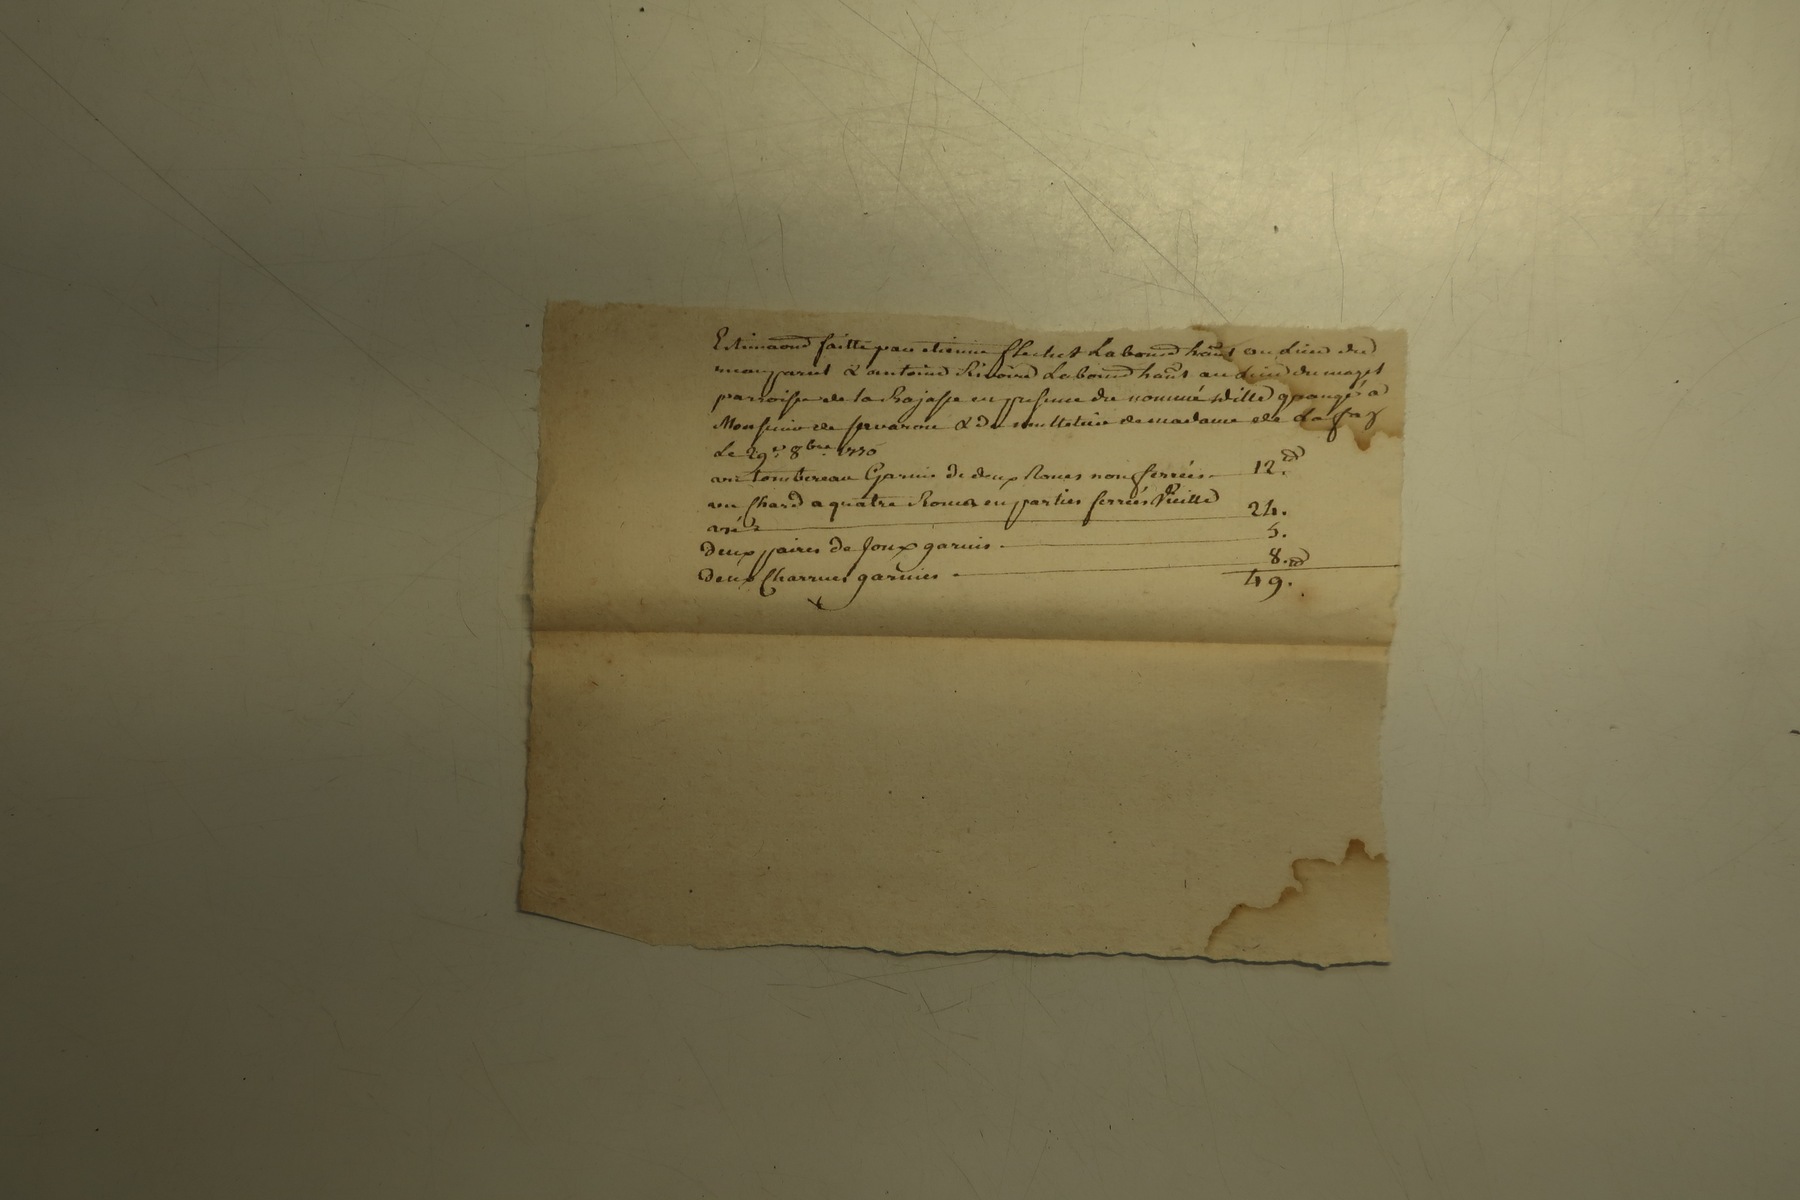 Estimaond faitte par etienne flechet Labourd hant au Lieu du
mauparel & antoine Rivoire Labourd hant au Lieu du mazel
parroisse de la Rajasse en presence du nommé Ville grangé a
Monsieur de Savaron & du metteier de madame de La fay
Le 29e 8bre 1730
un tombereau Garnie de deux Roues non ferrées 12.
un Chard a quatre Roues en parties ferrées Vieille
24.
deux paires de Joux garnis 5.
deux Charrues garnies 8.
49.